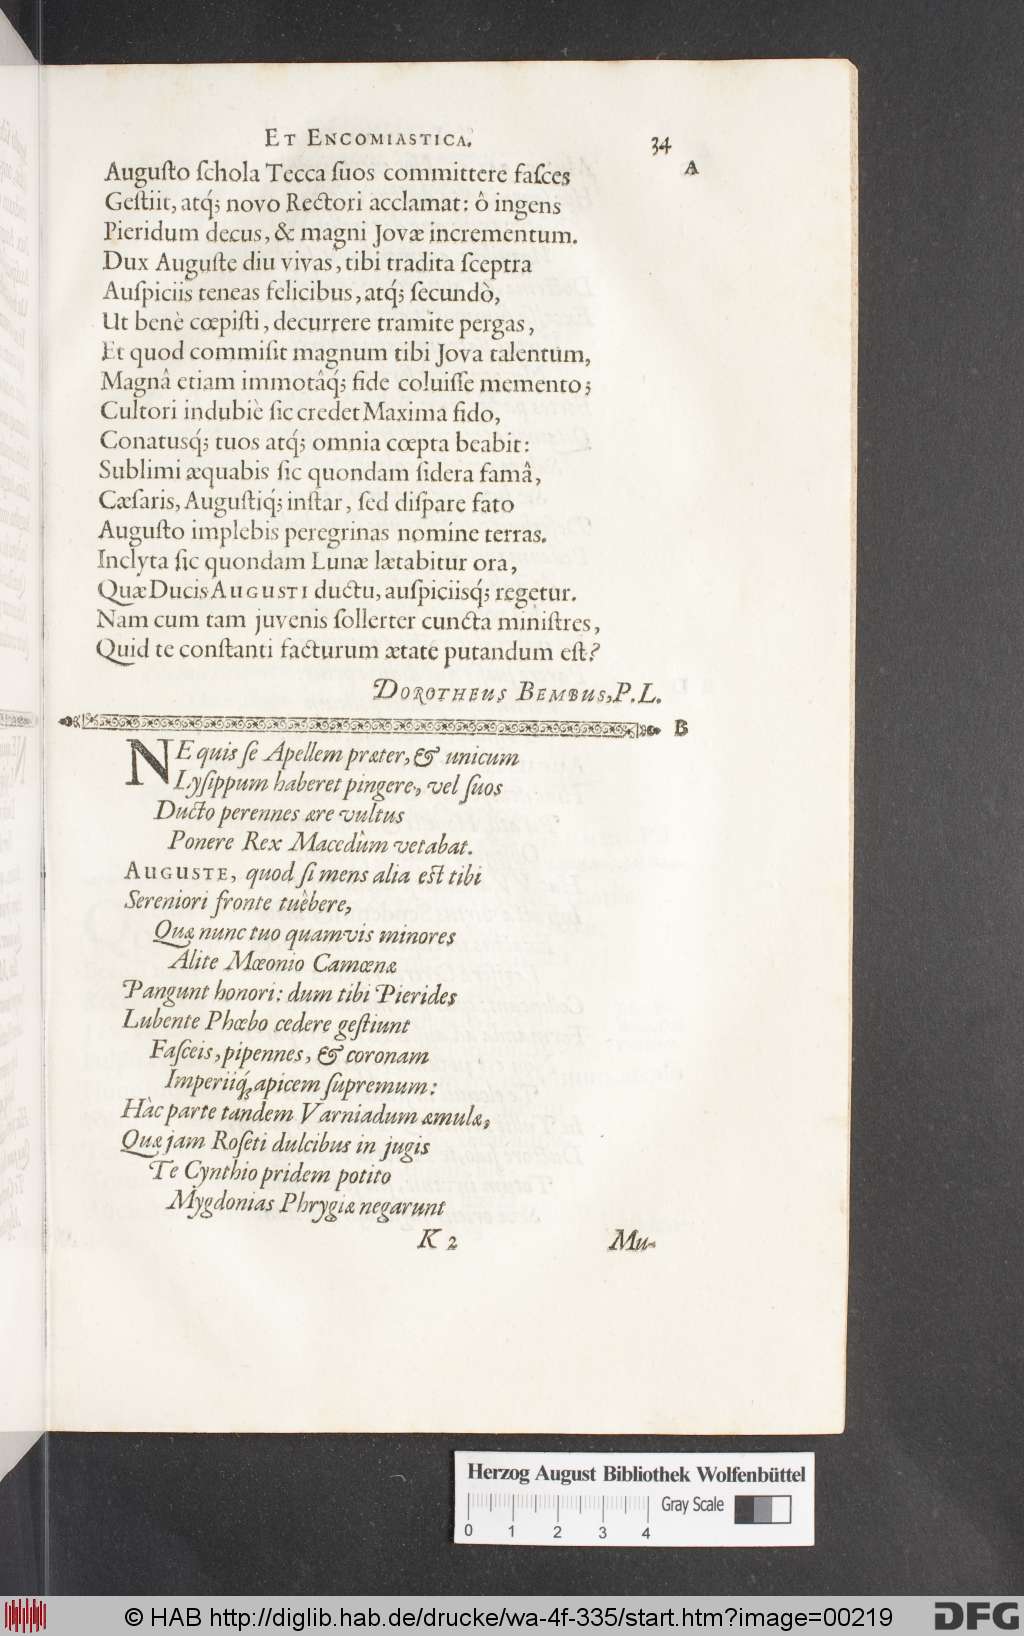 ET ENCOMIASTICA. 34
A
Augusto schola Tecca suos committere fasces
Gestiit, atq́; novo Rectori acclamat: ô ingens
Pieridum decus, & magni Jovæ incrementum.
Dux Auguste diu vivas, tibi tradita sceptra
Auspiciis teneas felicibus, atq́; secundò,
Ut benè cœpisti, decurrere tramite pergas,
Et quod commisit magnum tibi Jova talentum,
Magnâ etiam immotâq́; fide coluisse memento;
Cultori indubiè sic credet Maxima fido,
Conatusq́; tuos atq́; omnia cœpta beabit:
Sublimi æquabis sic quondam sidera famâ,
Cæsaris, Augustiq́; instar, sed dispare fato
Augusto implebis peregrinas nomine terras.
Inclyta sic quondam Lunæ lætabitur ora,
Quæ Ducis AUGUSTI ductu, auspiciisq́; regetur.
Nam cum tam juvenis sollerter cuncta ministres,
Quid te constanti facturum ætate putandum est?
DOROTHEUS BEMBUS, P. L.
B
NE quis se Apellem præter, & unicum
Lysippum haberet pingere, vel suos
Ducto perennes ære vultus
Ponere Rex Macedùm vetabat.
AUGUSTE, quod si mens alia est tibi
Sereniori fronte tuèbere,
Quæ nunc tuo quamvis minores
Alite Mœonio Camœnæ
Pangunt honori: dum tibi Pierides
Lubente Phœbo cedere gestiunt
Fasceis, pipennes, & coronam
Imperiiq́; apicem supremum:
Hàc parte tandem Varniadum æmulæ,
Quæ jam Roseti dulcibus in jugis
Te Cynthio pridem potito
Mygdonias Phrygiæ negarunt
K 2 Mu-
Herzog August Bibliothek Wolfenbüttel
Gray Scale
0 1 2 3 4
© HAB http://diglib.hab.de/drucke/wa-4f-335/start.htm?image=00219
DFG